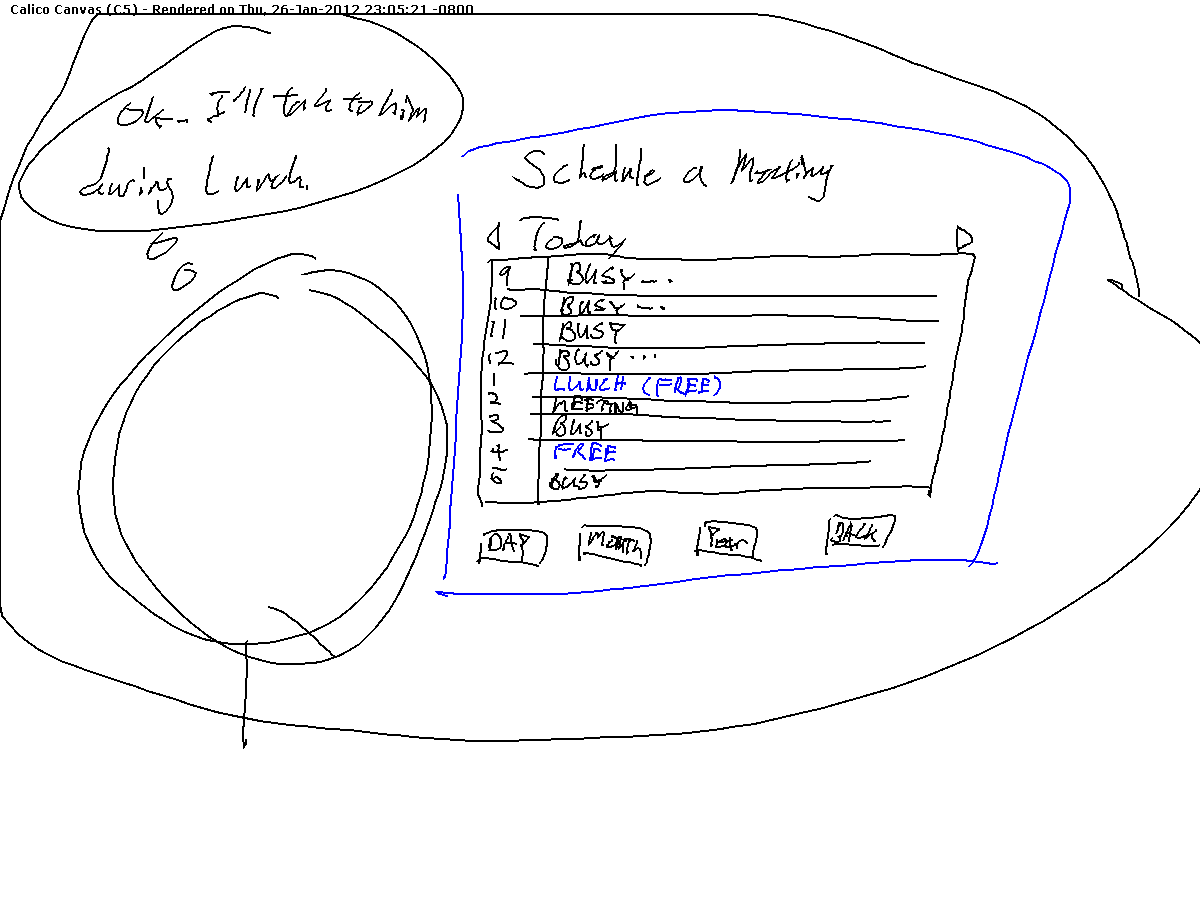 Calico Canvas (C5) - Rendered on Thu, 26-Jan-2012 23:05:21 -0800
Ok- I'll talk to him
during Lunch.
Schedule a Meeting
Today
9 BUSY --.
10 BUSY --.
11 BUSY
12 BUSY ...
1 LUNCH (FREE)
2 MEETING
3 BUSY
4 FREE
5 BUSY
DAY MONTH Year BACK